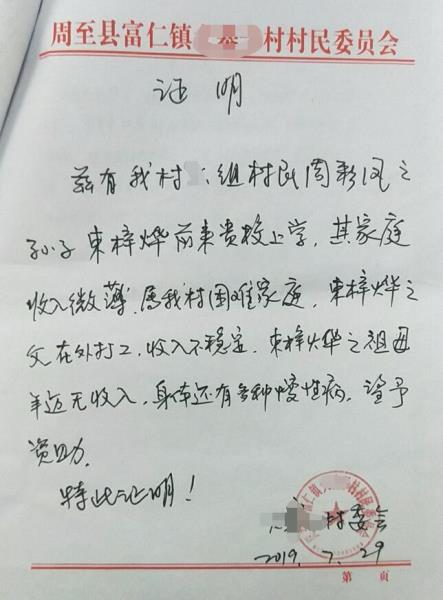 周至县富仁镇 村村民委员会
证明
兹有我村 组村民周彩凤之
孙子束梓烨前来贵校上学，其家庭
收入微薄，属我村困难家庭，束梓烨之
父在外打工，收入不稳定，束梓烨之祖母
年迈无收入，身体还有多种慢性病，望予
资助。
特此证明！
村委会
2019.7.29
第 页